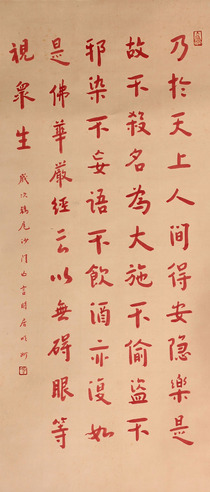 乃於天上人間得安隐樂是
故不殺名為大施不偷盜不
邪染不妄語不飲酒亦復如
是佛華嚴經云以無碍眼等
視眾生
歲次鶉尾沙門